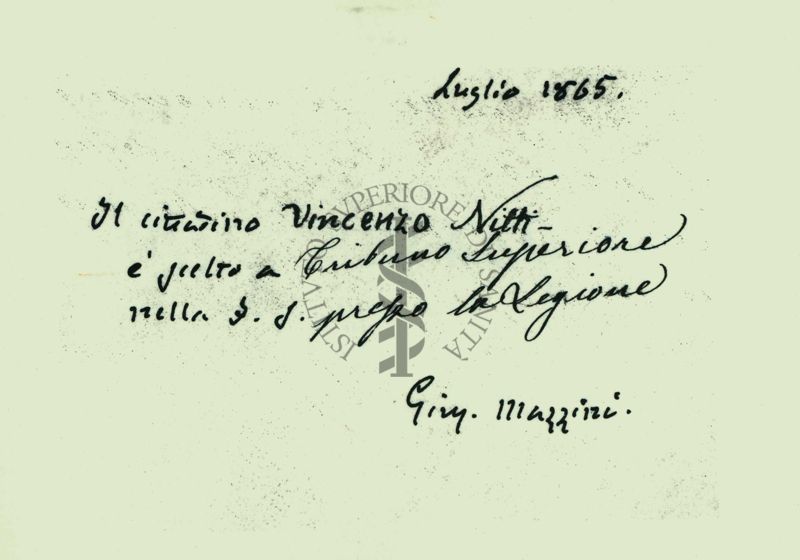 Luglio 1865.
Il cittadino Vincenzo Nitti
è scelto a Tribuno Superiore
nella S. S. presso la Legione
Gius. Mazzini.
ISTITVTO SVPERIORE DI SANITÀ